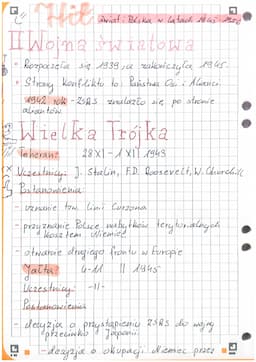 Hit
Świat i Polska w latach 1945-1956
II Wojna światowa
• Rozpoczęła się 1939, a zakończyła 1945.
• Strony konfliktu to: Państwa Osi i Alianci.
1942 rok - ZSRS znalazło się po stronie
aliantów.
Wielka Trójka
Teheran: 28 XI - 1 XII 1943
Uczestnicy: J. Stalin, F.D. Roosevelt, W. Churchill
Postanowienia:
- uznanie tzw. linii Curzona
- przyznanie Polsce nabytków terytorialnych
kosztem Niemiec
- otwarcie drugiego frontu w Europie
Jałta: 4-11 II 1945
Uczestnicy: -||-
Postanowienia:
- decyzja o przystąpieniu ZSRS do wojny
przeciwko Japonii
- decyzja o okupacji Niemiec przez